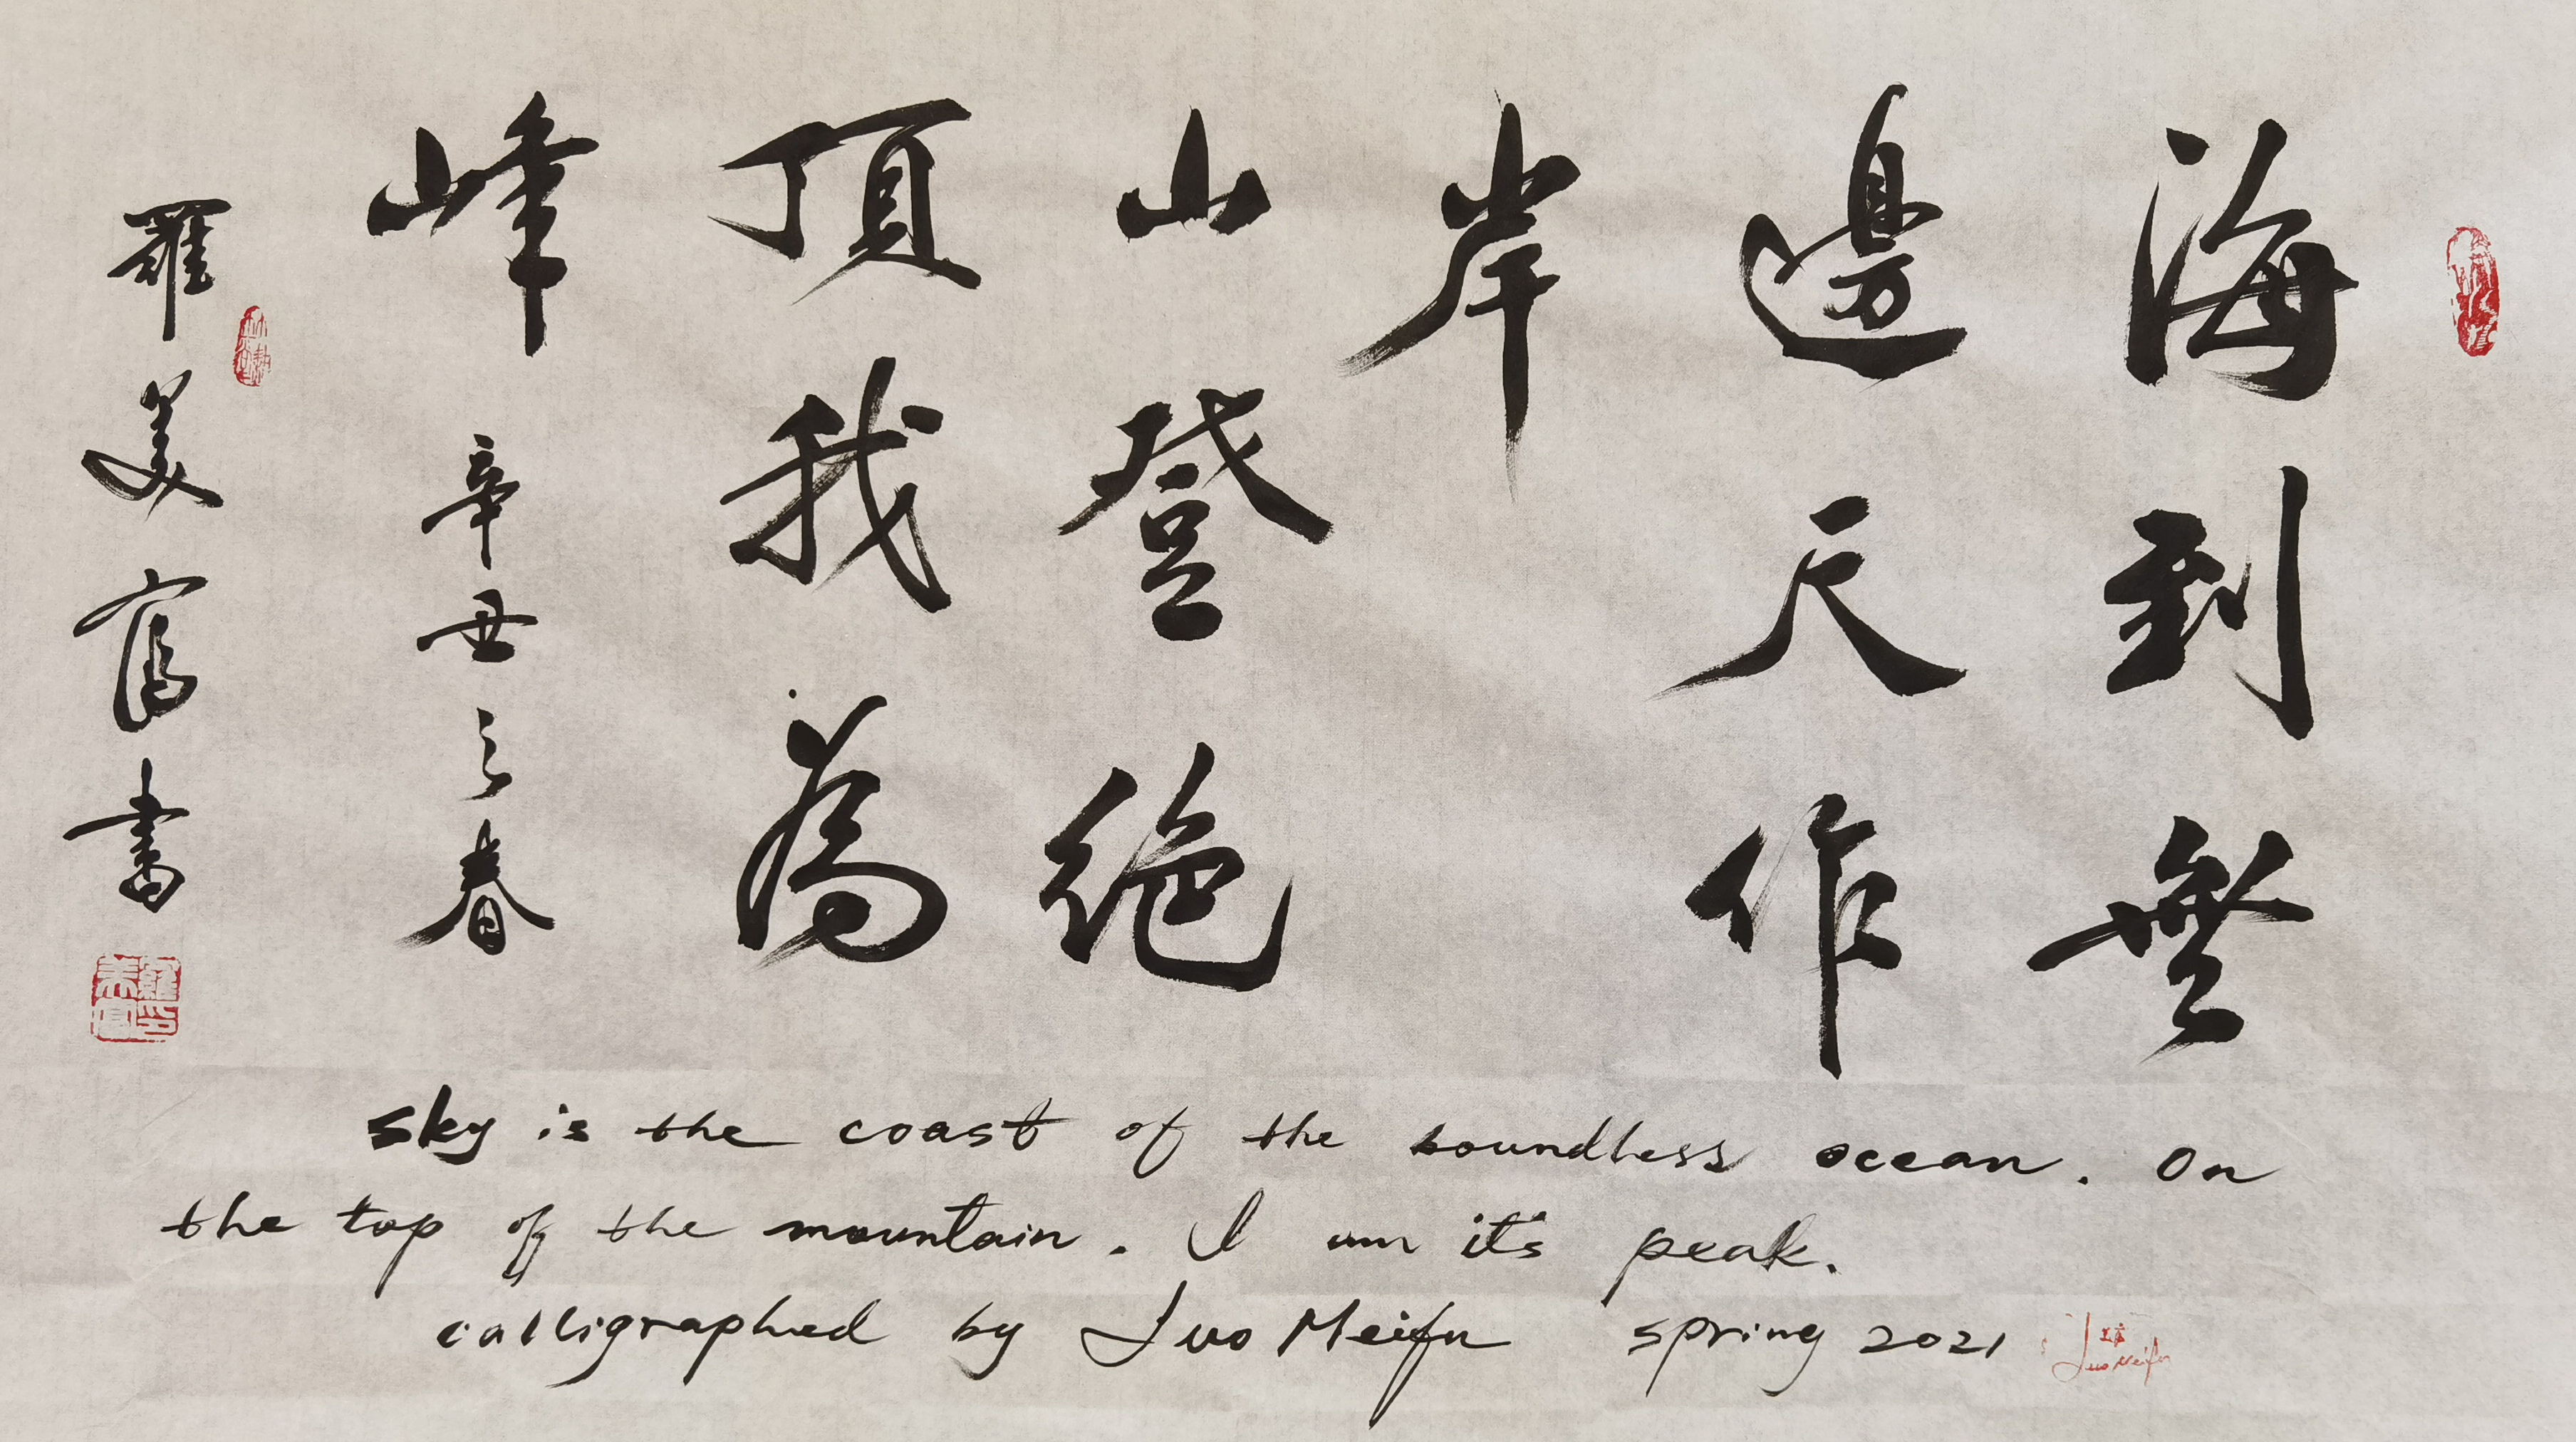 海到無
邊天作
岸
山登絶
頂我為
峰 辛丑之春
羅美富書
羅美富印
sky is the coast of the boundless ocean. On
the top of the mountain. I am it's peak.
calligraphed by Luo Meifu spring 2021
Luo Meifu